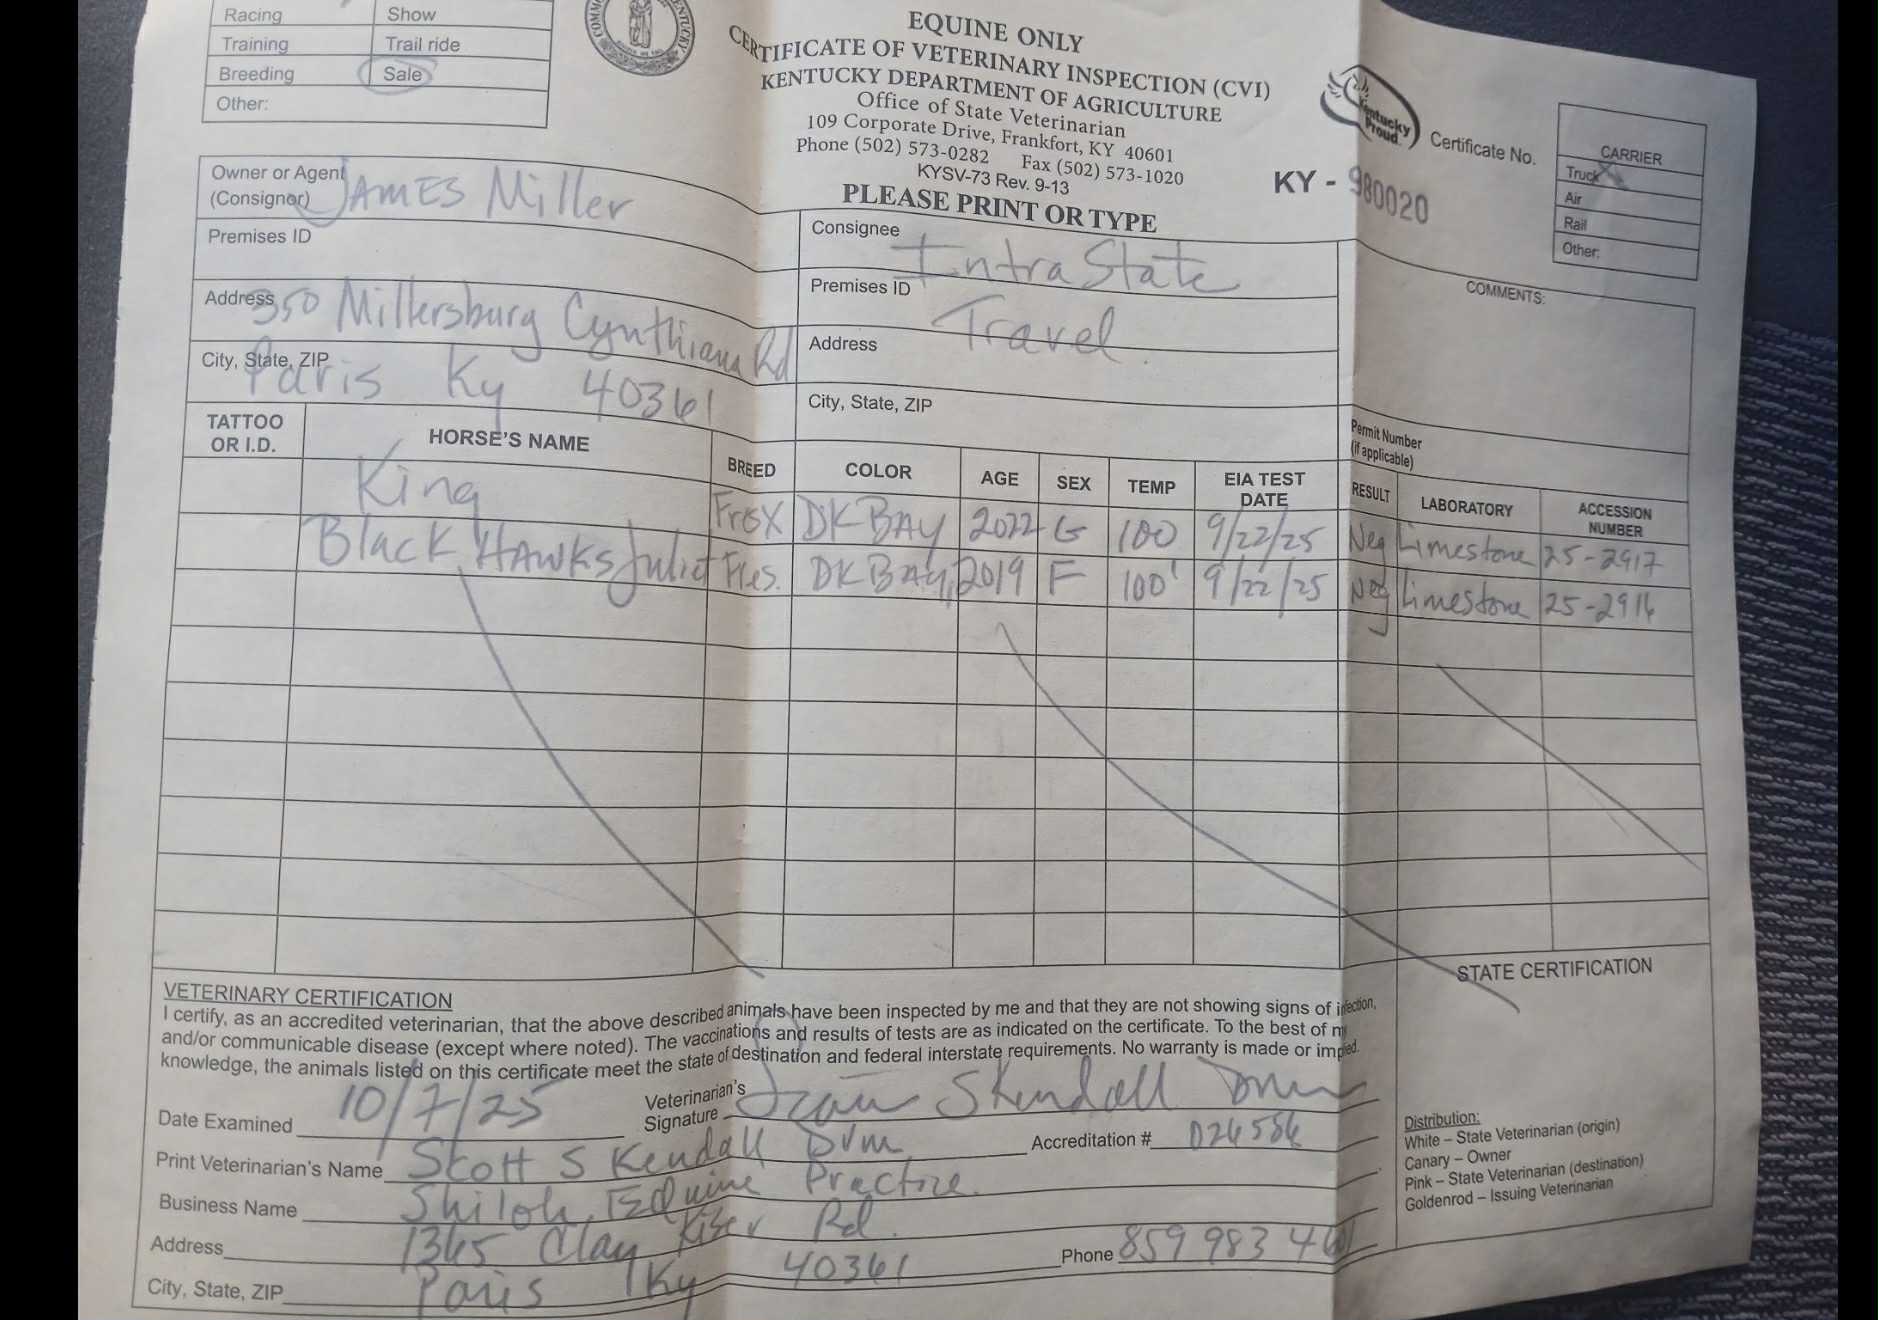 Racing Show
Training Trail ride
Breeding Sale
Other:
EQUINE ONLY
CERTIFICATE OF VETERINARY INSPECTION (CVI)
KENTUCKY DEPARTMENT OF AGRICULTURE
Office of State Veterinarian
109 Corporate Drive, Frankfort, KY 40601
Phone (502) 573-0282 Fax (502) 573-1020
KYSV-73 Rev. 9-13
PLEASE PRINT OR TYPE
Kentucky Proud
Certificate No.
KY - 980020
CARRIER
Truck X
Air
Rail
Other:
Owner or Agent
(Consignor) JAMES Miller
Premises ID
Address 350 Millersburg Cynthiana Rd
City, State, ZIP Paris Ky 40361
Consignee IntraState
Premises ID
Travel
Address
City, State, ZIP
COMMENTS:
Permit Number
(if applicable)
TATTOO OR I.D. HORSE'S NAME BREED COLOR AGE SEX TEMP EIA TEST DATE RESULT LABORATORY ACCESSION NUMBER
King DK BAY 2022 G 100 9/22/25 Neg Limestone 25-2917
Black HAWKS Juliet Fres. DK BAY 2019 F 100 9/22/25 Neg Limestone 25-2916
VETERINARY CERTIFICATION
I certify, as an accredited veterinarian, that the above described animals have been inspected by me and that they are not showing signs of infection,
and/or communicable disease (except where noted). The vaccinations and results of tests are as indicated on the certificate. To the best of my
knowledge, the animals listed on this certificate meet the state of destination and federal interstate requirements. No warranty is made or implied.
STATE CERTIFICATION
Date Examined 10/7/25
Veterinarian's
Signature S Kendall DVM
Print Veterinarian's Name Scott S Kendall DVM
Accreditation # 026586
Business Name Shiloh Equine Practice
Address 1365 Clay Kiser Rd.
City, State, ZIP Paris Ky 40361
Phone 859 983 4
Distribution:
White – State Veterinarian (origin)
Canary – Owner
Pink – State Veterinarian (destination)
Goldenrod – Issuing Veterinarian